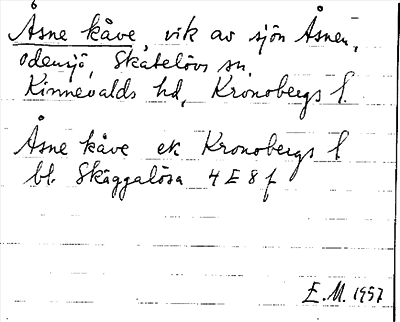 Åsne kåve, vik av sjön Åsnen,
Odensjö, Skatelövs sn,
Kinnevalds hd, Kronobergs l.
Åsne kåve ek Kronobergs l
bl. Skäggalösa 4 E 8 f
E.M. 1957